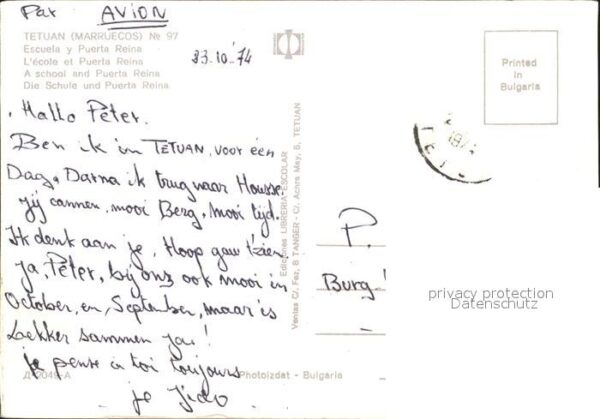 Par AVION
TETUAN (MARRUECOS) № 97
Escuela y Puerta Reina
L'école et Puerta Reina
A school and Puerta Reina
Die Schule und Puerta Reina
23.10.'74
Printed
in
Bulgaria
Hallo Péter.
Ben ik in TETUAN, voor één
Dag, Darna ik trug naar
mooi Berg, mooi tijd.
Ik denk aan je, Hoop gauw
ja, Péter, bij ons ook mooi in
October, en, September, maar is
Lekker sammen ja!
je pense a toi toujours
je
Ediciones LIBRERIA-ESCOLAR
Ventas C/. Fez, 8 TANGER - C/. Achra May, 8, TETUAN
P.
Burg
privacy protection
Datenschutz
Д-2049-А
Photoizdat - Bulgaria